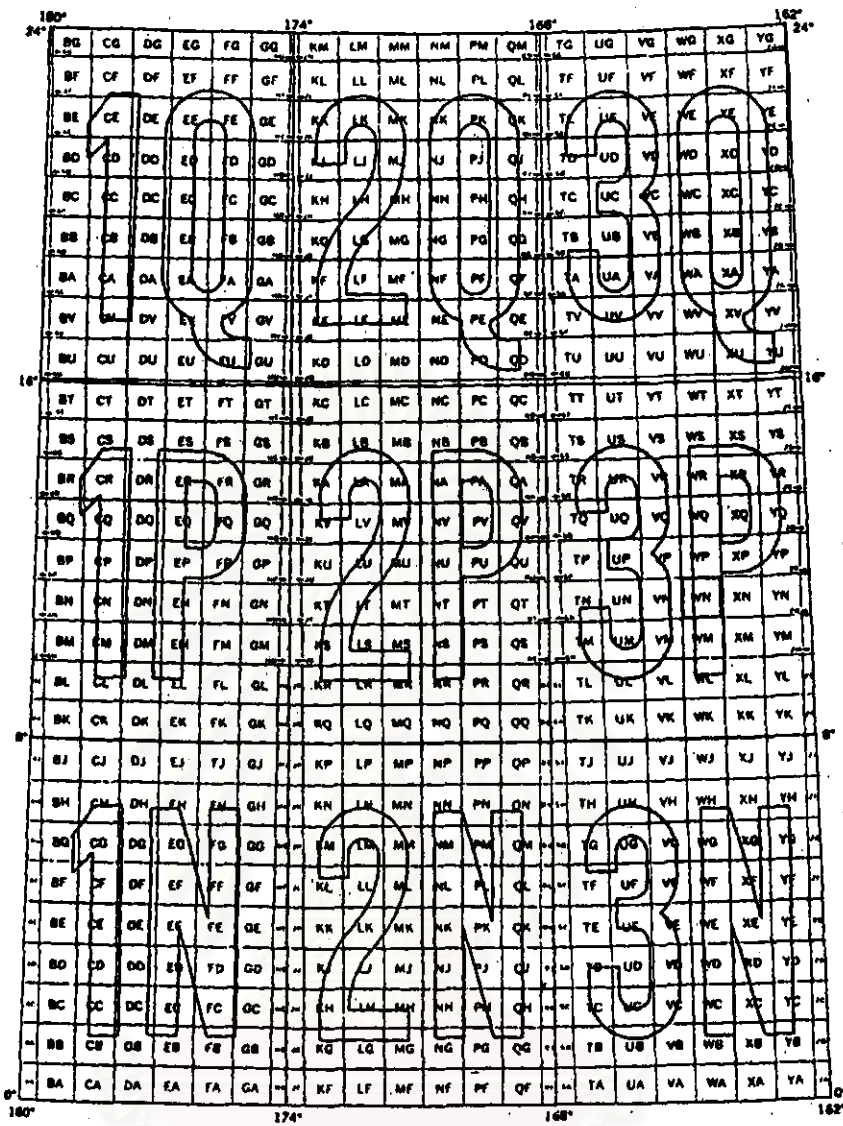 180° 174° 166° 162°
24° 24°
BG CG DG EG FG GG KM LM MM NM PM QM TG UG VG WG XG YG
BF CF DF EF FF GF KL LL ML NL PL QL TF UF VF WF XF YF
BE CE DE EE FE GE KK LK MK NK PK QK TE UE VE WE XE YE
BD CD DD ED FD GD KJ LJ MJ NJ PJ QJ TD UD VD WD XD YD
BC CC DC EC FC GC KH LH MH NH PH QH TC UC VC WC XC YC
BB CB DB EB FB GB KG LG MG NG PG QG TB UB VB WB XB YB
BA CA DA EA FA GA KF LF MF NF PF QF TA UA VA WA XA YA
BV CV DV EV FV GV KE LE ME NE PE QE TV UV VV WV XV YV
BU CU DU EU FU GU KD LD MD ND PD QD TU UU VU WU XU YU
1Q 2Q 3Q
16° 16°
BT CT DT ET FT GT KC LC MC NC PC QC TT UT VT WT XT YT
BS CS DS ES FS GS KB LB MB NB PB QB TS US VS WS XS YS
BR CR DR ER FR GR KA LA MA NA PA QA TR UR VR WR XR YR
BQ CQ DQ EQ FQ GQ KV LV MV NV PV QV TQ UQ VQ WQ XQ YQ
BP CP DP EP FP GP KU LU MU NU PU QU TP UP VP WP XP YP
BN CN DN EN FN GN KT LT MT NT PT QT TN UN VN WN XN YN
BM CM DM EM FM GM KS LS MS NS PS QS TM UM VM WM XM YM
BL CL DL EL FL GL KR LR MR NR PR QR TL UL VL WL XL YL
BK CK DK EK FK GK KQ LQ MQ NQ PQ QQ TK UK VK WK XK YK
1P 2P 3P
8° 8°
BJ CJ DJ EJ FJ GJ KP LP MP NP PP QP TJ UJ VJ WJ XJ YJ
BH CH DH EH FH GH KN LN MN NN PN QN TH UH VH WH XH YH
BG CG DG EG FG GG KM LM MM NM PM QM TG UG VG WG XG YG
BF CF DF EF FF GF KL LL ML NL PL QL TF UF VF WF XF YF
BE CE DE EE FE GE KK LK MK NK PK QK TE UE VE WE XE YE
BD CD DD ED FD GD KJ LJ MJ NJ PJ QJ TD UD VD WD XD YD
BC CC DC EC FC GC KH LH MH NH PH QH TC UC VC WC XC YC
BB CB DB EB FB GB KG LG MG NG PG QG TB UB VB WB XB YB
BA CA DA EA FA GA KF LF MF NF PF QF TA UA VA WA XA YA
1N 2N 3N
0° 0°
180° 174° 168° 162°